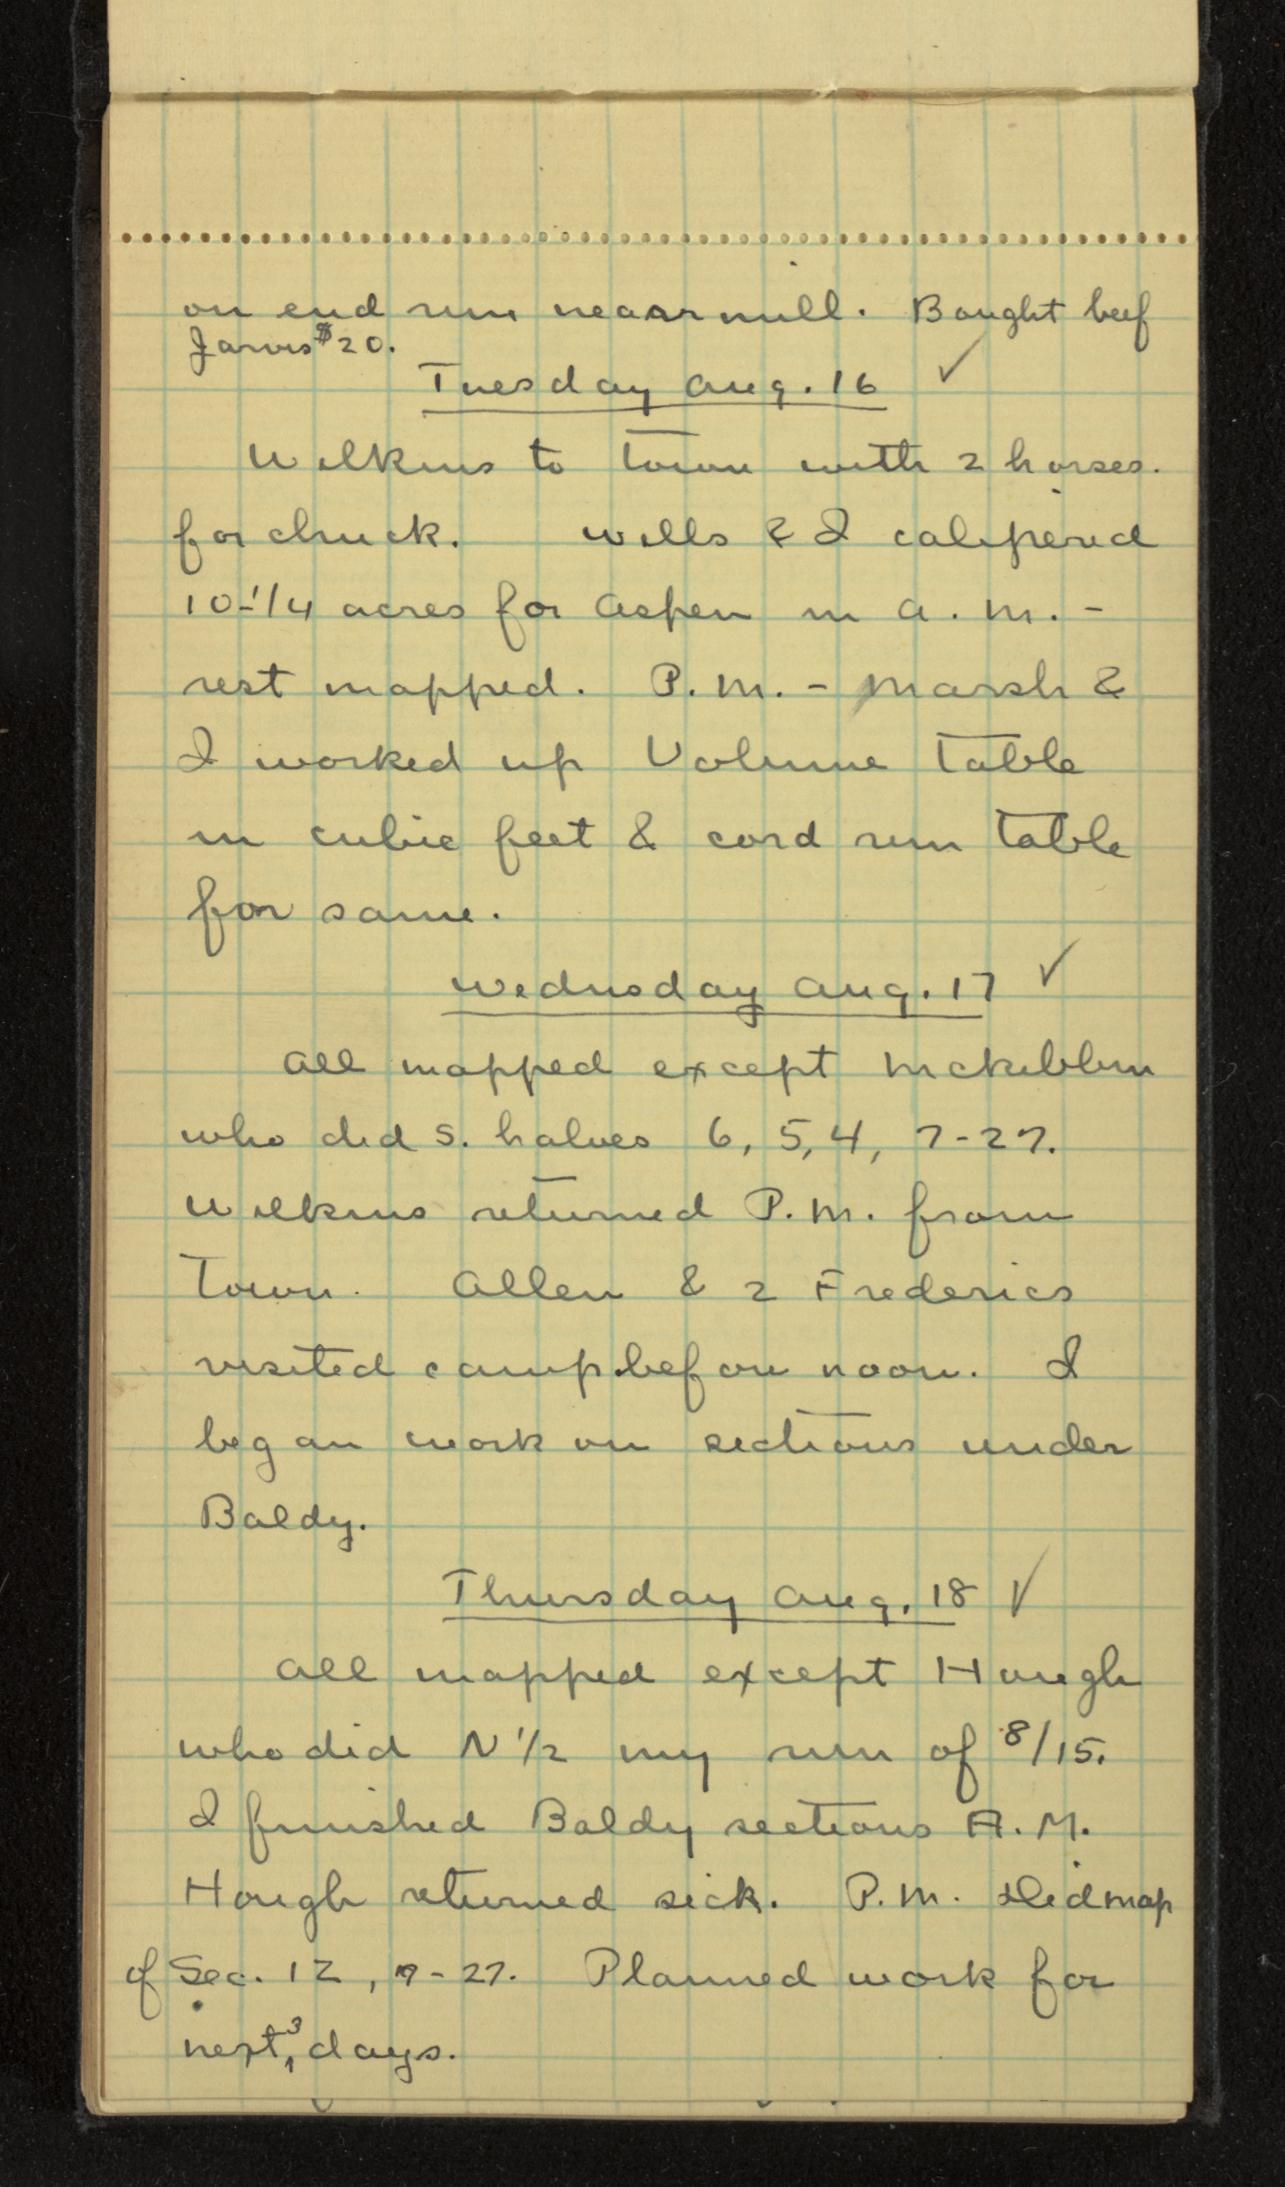 on end run near mill. Bought beef
Jarvis $20.
Tuesday Aug. 16 ✓
Wilkins to Town with 2 horses.
for chuck. Wells & I calipered
10-1/4 acres for Aspen in A.M. -
rest mapped. P.M. - Marsh &
I worked up Volume Table
in cubic feet & cord run Table
for same.
Wednesday Aug. 17 ✓
All mapped except McKibbin
who did S. halves 6, 5, 4, 7-27.
Wilkins returned P.M. from
Town. Allen & 2 Frederics
visited camp before noon. I
began work on sections under
Baldy.
Thursday Aug. 18 ✓
All mapped except Hough
who did N 1/2 my run of 8/15.
I finished Baldy sections A.M.
Hough returned sick. P.M. Did map
of Sec. 12, 7-27. Planned work for
next 3 days.